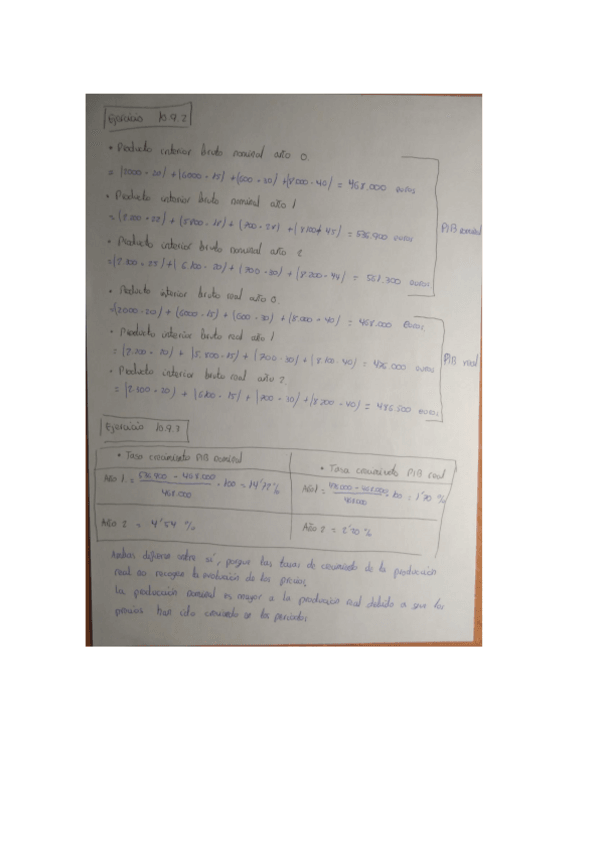 Ejercicio 10.9.2
• Producto interior bruto nominal año 0.
= (2000 · 20) + (6000 · 15) + (600 · 30) + (8000 · 40) = 468.000 euros
• Producto interior bruto nominal año 1
= (2.200 · 22) + (5800 · 18) + (700 · 28) + (8.100 · 45) = 536.900 euros
PIB nominal
• Producto interior bruto nominal año 2
= (2.300 · 25) + (6.100 · 20) + (700 · 30) + (8.200 · 44) = 561.300 euros.
• Producto interior bruto real año 0.
= (2000 · 20) + (6000 · 15) + (600 · 30) + (8.000 · 40) = 468.000 euros.
• Producto interior bruto real año 1
= (2.200 · 20) + (5.800 · 15) + (700 · 30) + (8.100 · 40) = 476.000 euros
PIB real
• Producto interior bruto real año 2.
= (2.300 · 20) + (6.100 · 15) + (700 · 30) + (8.200 · 40) = 486.500 euros
Ejercicio 10.9.3
• Tasa crecimiento PIB nominal
• Tasa crecimiento PIB real
Año 1 = 536.900 - 468.000 / 468.000 · 100 = 14'72%
Año 1 = 476.000 - 468.000 / 468.000 · 100 = 1'70 %
Año 2 = 4'54 %
Año 2 = 2'20 %
Ambas difieren entre sí, porque las tasas de crecimiento de la producción
real no recogen la evolución de los precios.
La producción nominal es mayor a la producción real debido a que los
precios han ido creciendo en los periodos.